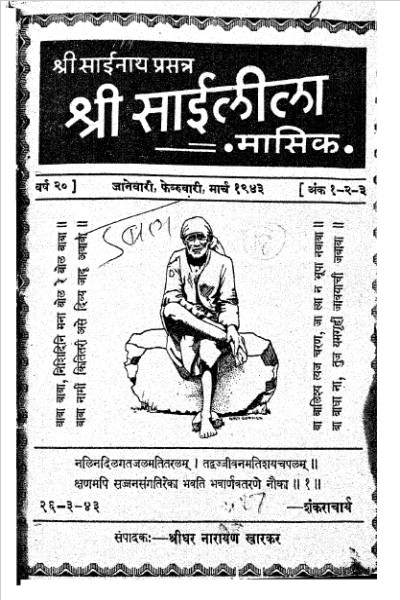 श्री साईनाथ प्रसन्न
श्री साईलीला
मासिक
वर्ष २०]
जानेवारी, फेब्रुवारी, मार्च १९४३
[ अंक १-२-३
डबल
बाबा बाबा, निशिदिनिं मना बोल रे बोल बाबा ॥
बाबा नामीं
असे दिव्य जादू अबाबे ॥
चरण, जा त्या न भूपा नबाबा ॥
बा बाबा ना, तुज यमगृहीं
नलिनदिलगतजलमतितरलम् । तद्वज्जीवनमतिशयचपलम् ॥
क्षणमपि सज्जनसंगतिरेका भवति भवार्णवतरणे नौका ॥ १ ॥
२६-३-४३
—शंकराचार्य
संपादक:— श्रीधर नारायण खारकर